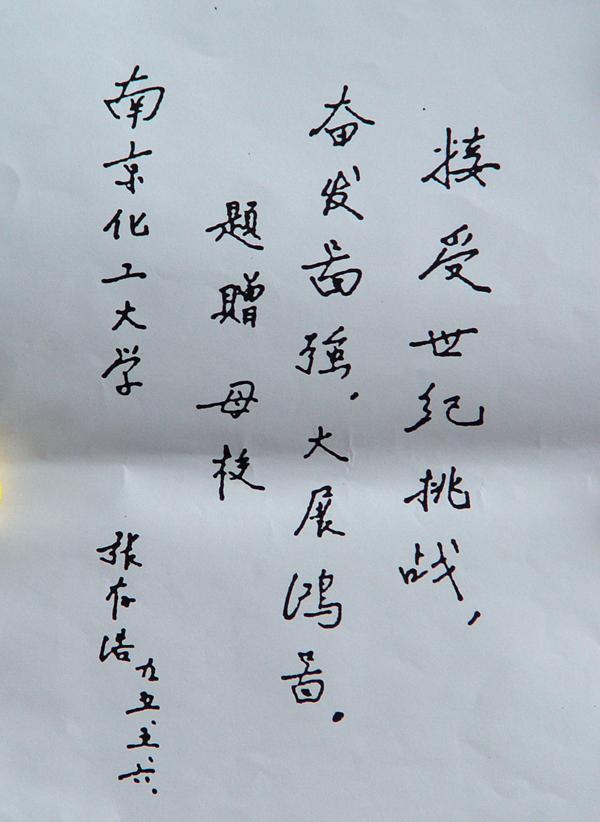 接受世纪挑战，
奋发啚强．大展鸿啚．
题贈母校
南京化工大学
張存浩
九五、五、六．